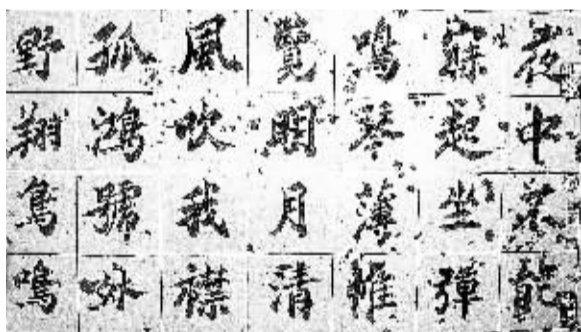 夜中不能
寐起坐彈
鳴琴薄帷
覽明月清
風吹我襟
孤鴻號外
野翔鳥鳴